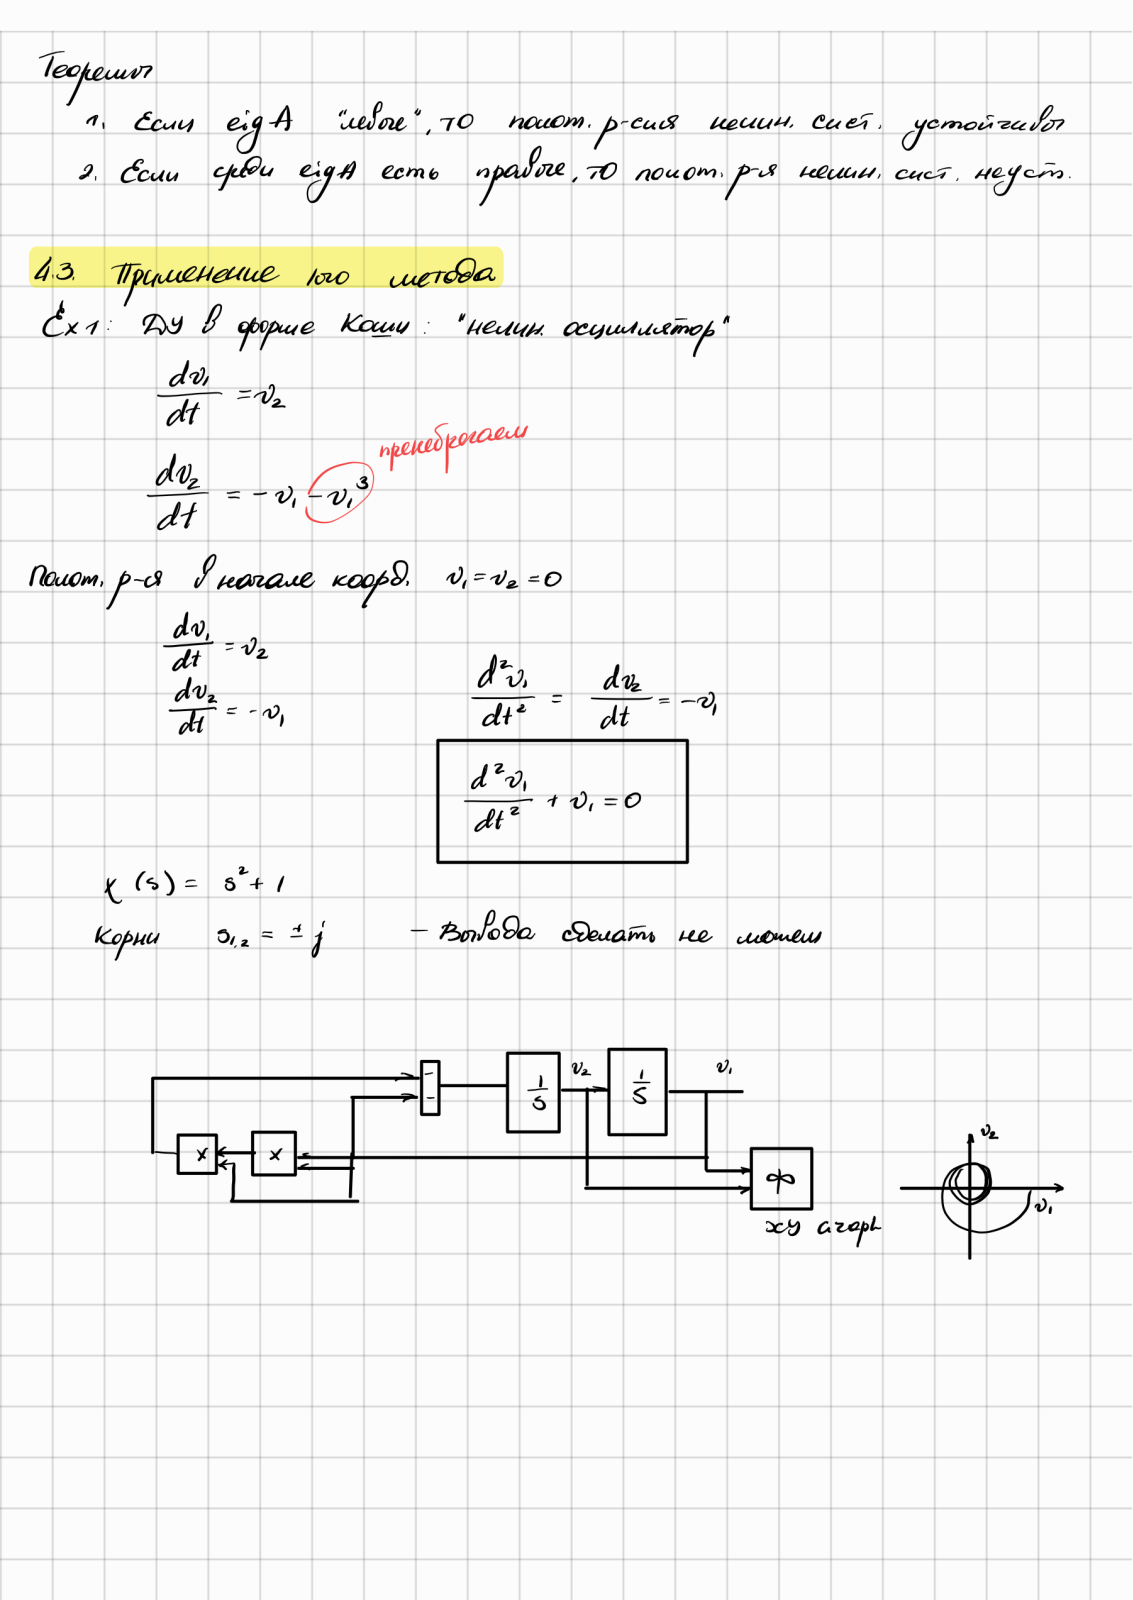 Теоремы
1. Если eig A "левые", то полож. р-сия нелин. сист. устойчивы
2. Если среди eigA есть правые, то полож. р-я нелин. сист. неуст.
4.3. Применение 1ого метода
Ex 1: ДУ в форме Коши: "нелин. осциллятор"
dv₁/dt = v₂
пренебрегаем
dv₂/dt = -v₁ -v₁³
Полож. р-я в начале коорд. v₁ = v₂ = 0
dv₁/dt = v₂
dv₂/dt = -v₁
d²v₁/dt² = dv₂/dt = -v₁
d²v₁/dt² + v₁ = 0
χ(s) = s² + 1
Корни s₁,₂ = ± j - Вывода сделать не можем
- 1/s v₂ 1/s v₁
-
x x
v₂
v₁
xy